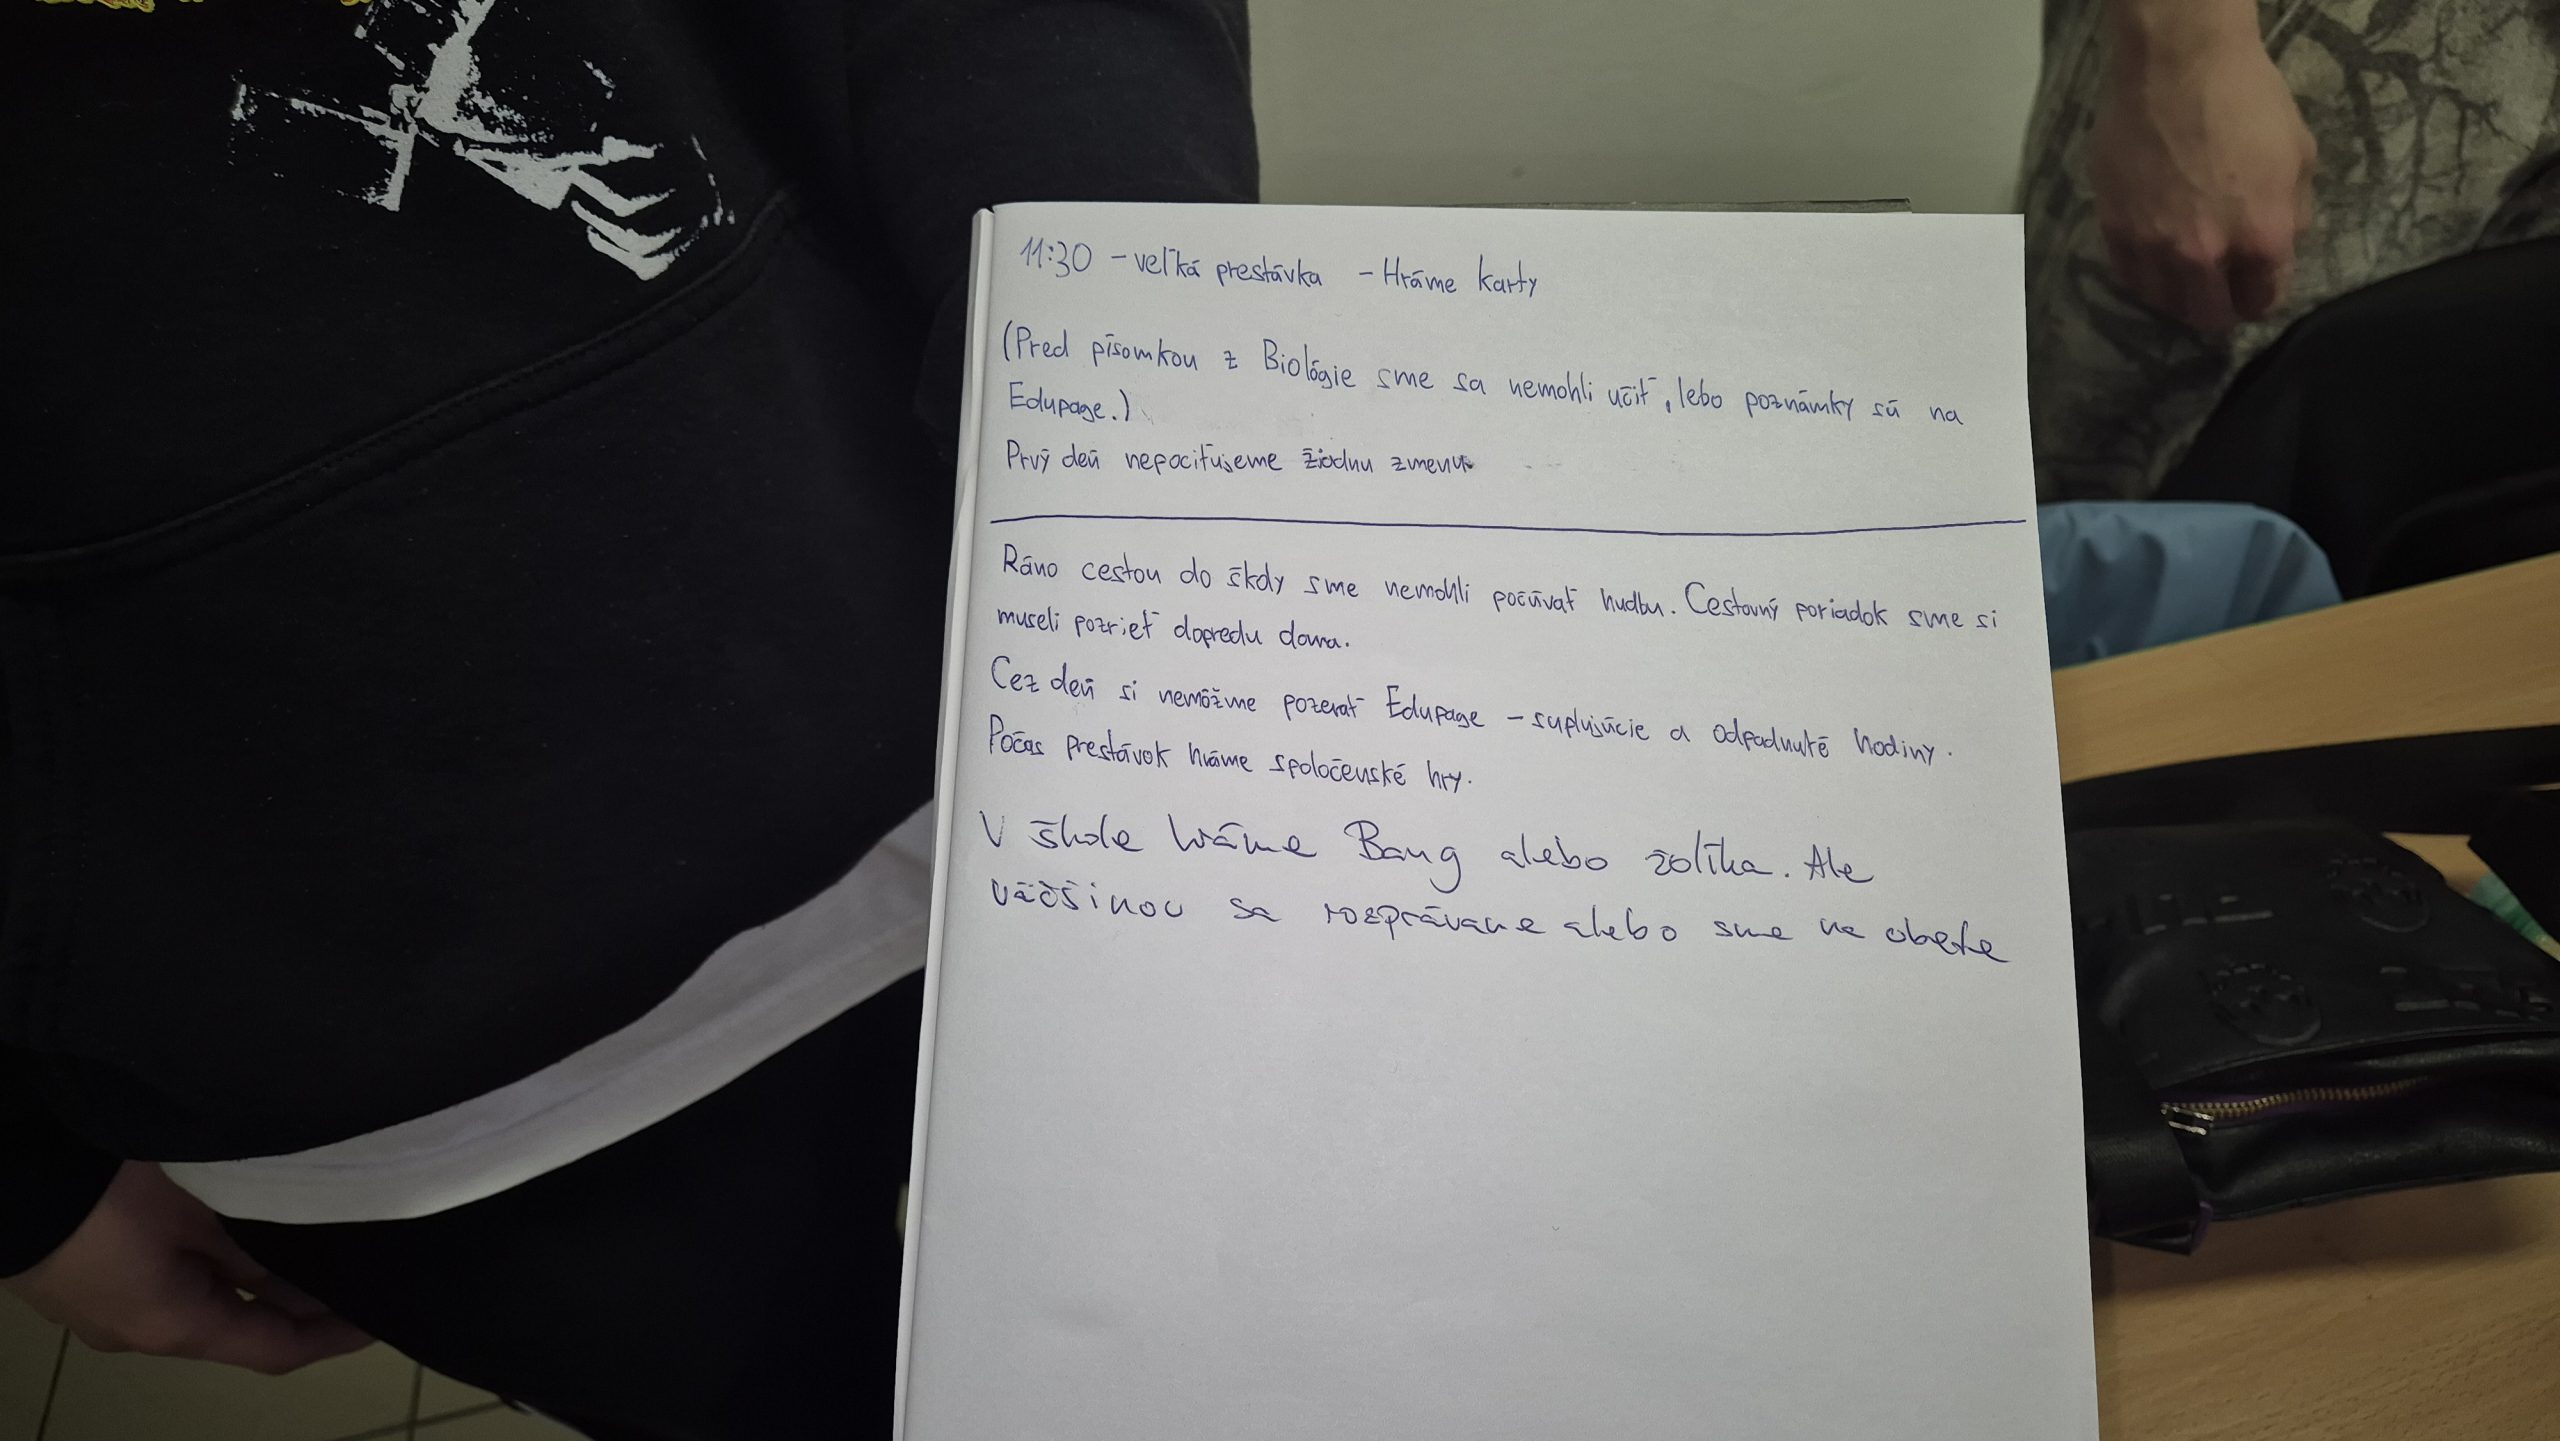 11:30 - veľká prestávka - Hráme karty
(Pred písomkou z Biológie sme sa nemohli učiť, lebo poznámky sú na
Edupage.)
Prvý deň nepociťujeme žiadnu zmenu
Ráno cestou do školy sme nemohli počúvať hudbu. Cestovný poriadok sme si
museli pozrieť dopredu doma.
Cez deň si nemôžme pozerať Edupage - suplujúcie a odpadnuté hodiny.
Počas prestávok hráme spoločenské hry.
V škole hráme Bang alebo žolíka. Ale
väčšinou sa rozprávame alebo sme na obede